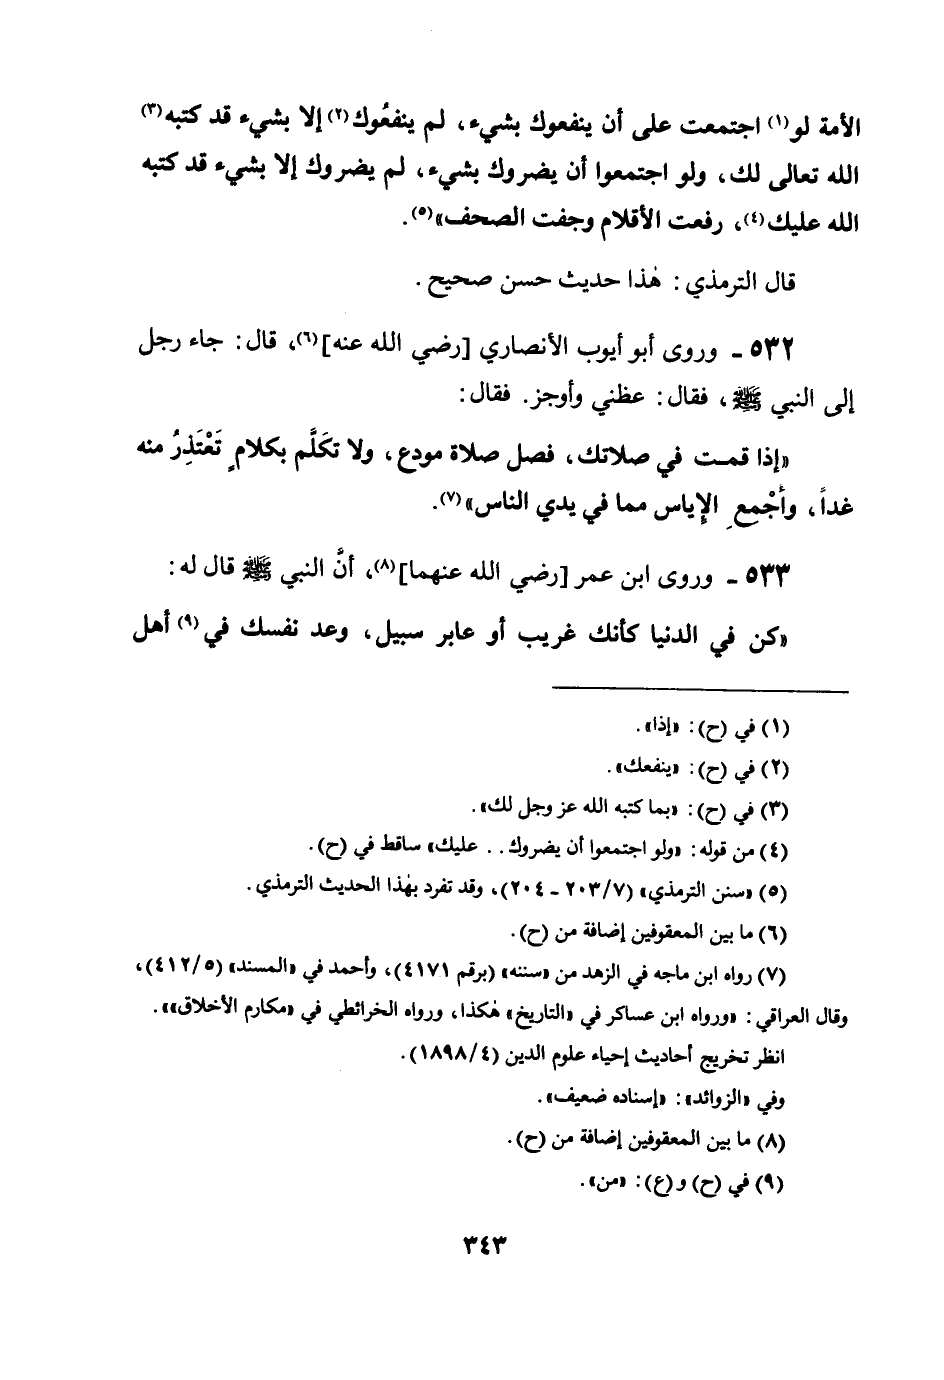 الأمة لو(١) اجتمعت على أن ينفعوك بشيء، لم ينفعُوك(٢) إلا بشيء قد كتبه(٣)
الله تعالى لك، ولو اجتمعوا أن يضروك بشيء، لم يضروك إلا بشيء قد كتبه
الله عليك(٤)، رفعت الأقلام وجفت الصحف»(٥).
قال الترمذي: هٰذا حديث حسن صحيح.
٥٣٢ ـ وروى أبو أيوب الأنصاري [رضي الله عنه](٦)، قال: جاء رجل
إلى النبي ﷺ، فقال: عظني وأوجز. فقال:
«إذا قمت في صلاتك، فصل صلاة مودع، ولا تكَلَّم بكلامٍ تَعْتَذِرُ منه
غداً، وأَجْمِعِ الإِياس مما في يدي الناس»(٧).
٥٣٣ ـ وروى ابن عمر [رضي الله عنهما](٨)، أنَّ النبي ﷺ قال له:
«كن في الدنيا كأنك غريب أو عابر سبيل، وعد نفسك في(٩) أهل
(١) في (ح): «إذا».
(٢) في (ح): «ينفعك».
(٣) في (ح): «بما كتبه الله عز وجل لك».
(٤) من قوله: «ولو اجتمعوا أن يضروك.. عليك» ساقط في (ح).
(٥) «سنن الترمذي» (٢٠٣/٧ ـ ٢٠٤)، وقد تفرد بهٰذا الحديث الترمذي.
(٦) ما بين المعقوفين إضافة من (ح).
(٧) رواه ابن ماجه في الزهد من «سننه» (برقم ٤١٧١)، وأحمد في «المسند» (٤١٢/٥)،
وقال العراقي: «ورواه ابن عساكر في «التاريخ» هٰكذا، ورواه الخرائطي في «مكارم الأخلاق»».
انظر تخريج أحاديث إحياء علوم الدين (١٨٩٨/٤).
وفي «الزوائد»: «إسناده ضعيف».
(٨) ما بين المعقوفين إضافة من (ح).
(٩) في (ح) و(ع): «من».
٣٤٣